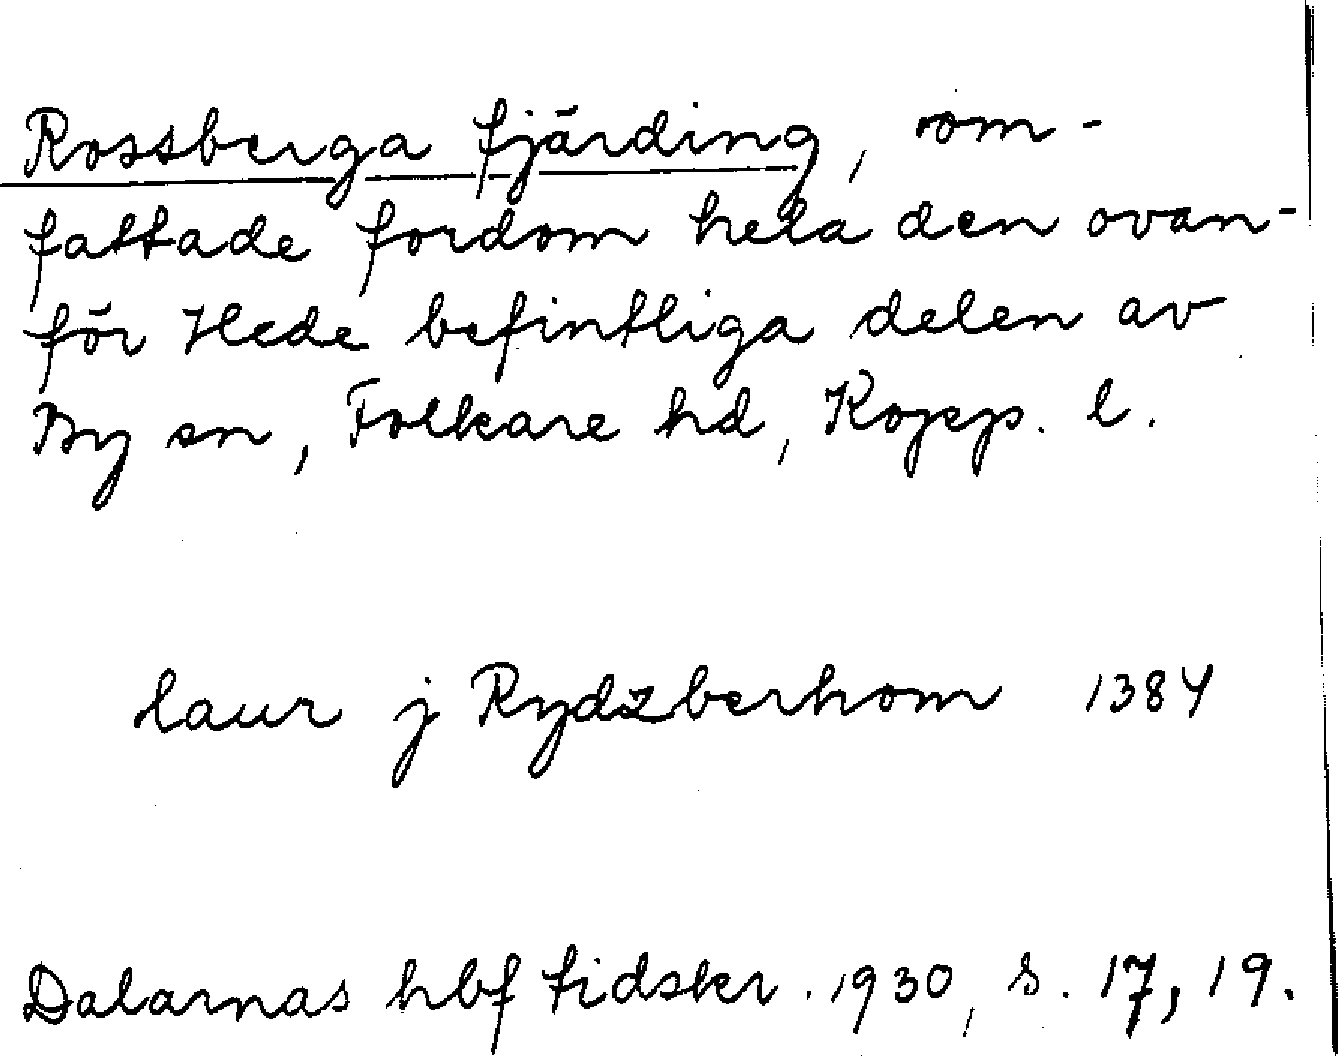 Rossberga fjärding, om-
fattade fordom hela den ovan-
för Hede befintliga delen av
By sn, Folkare hd, Kopp. l.
laur j Rydzberhom 1384
Dalarnas hbf tidskr. 1930, s. 17, 19.